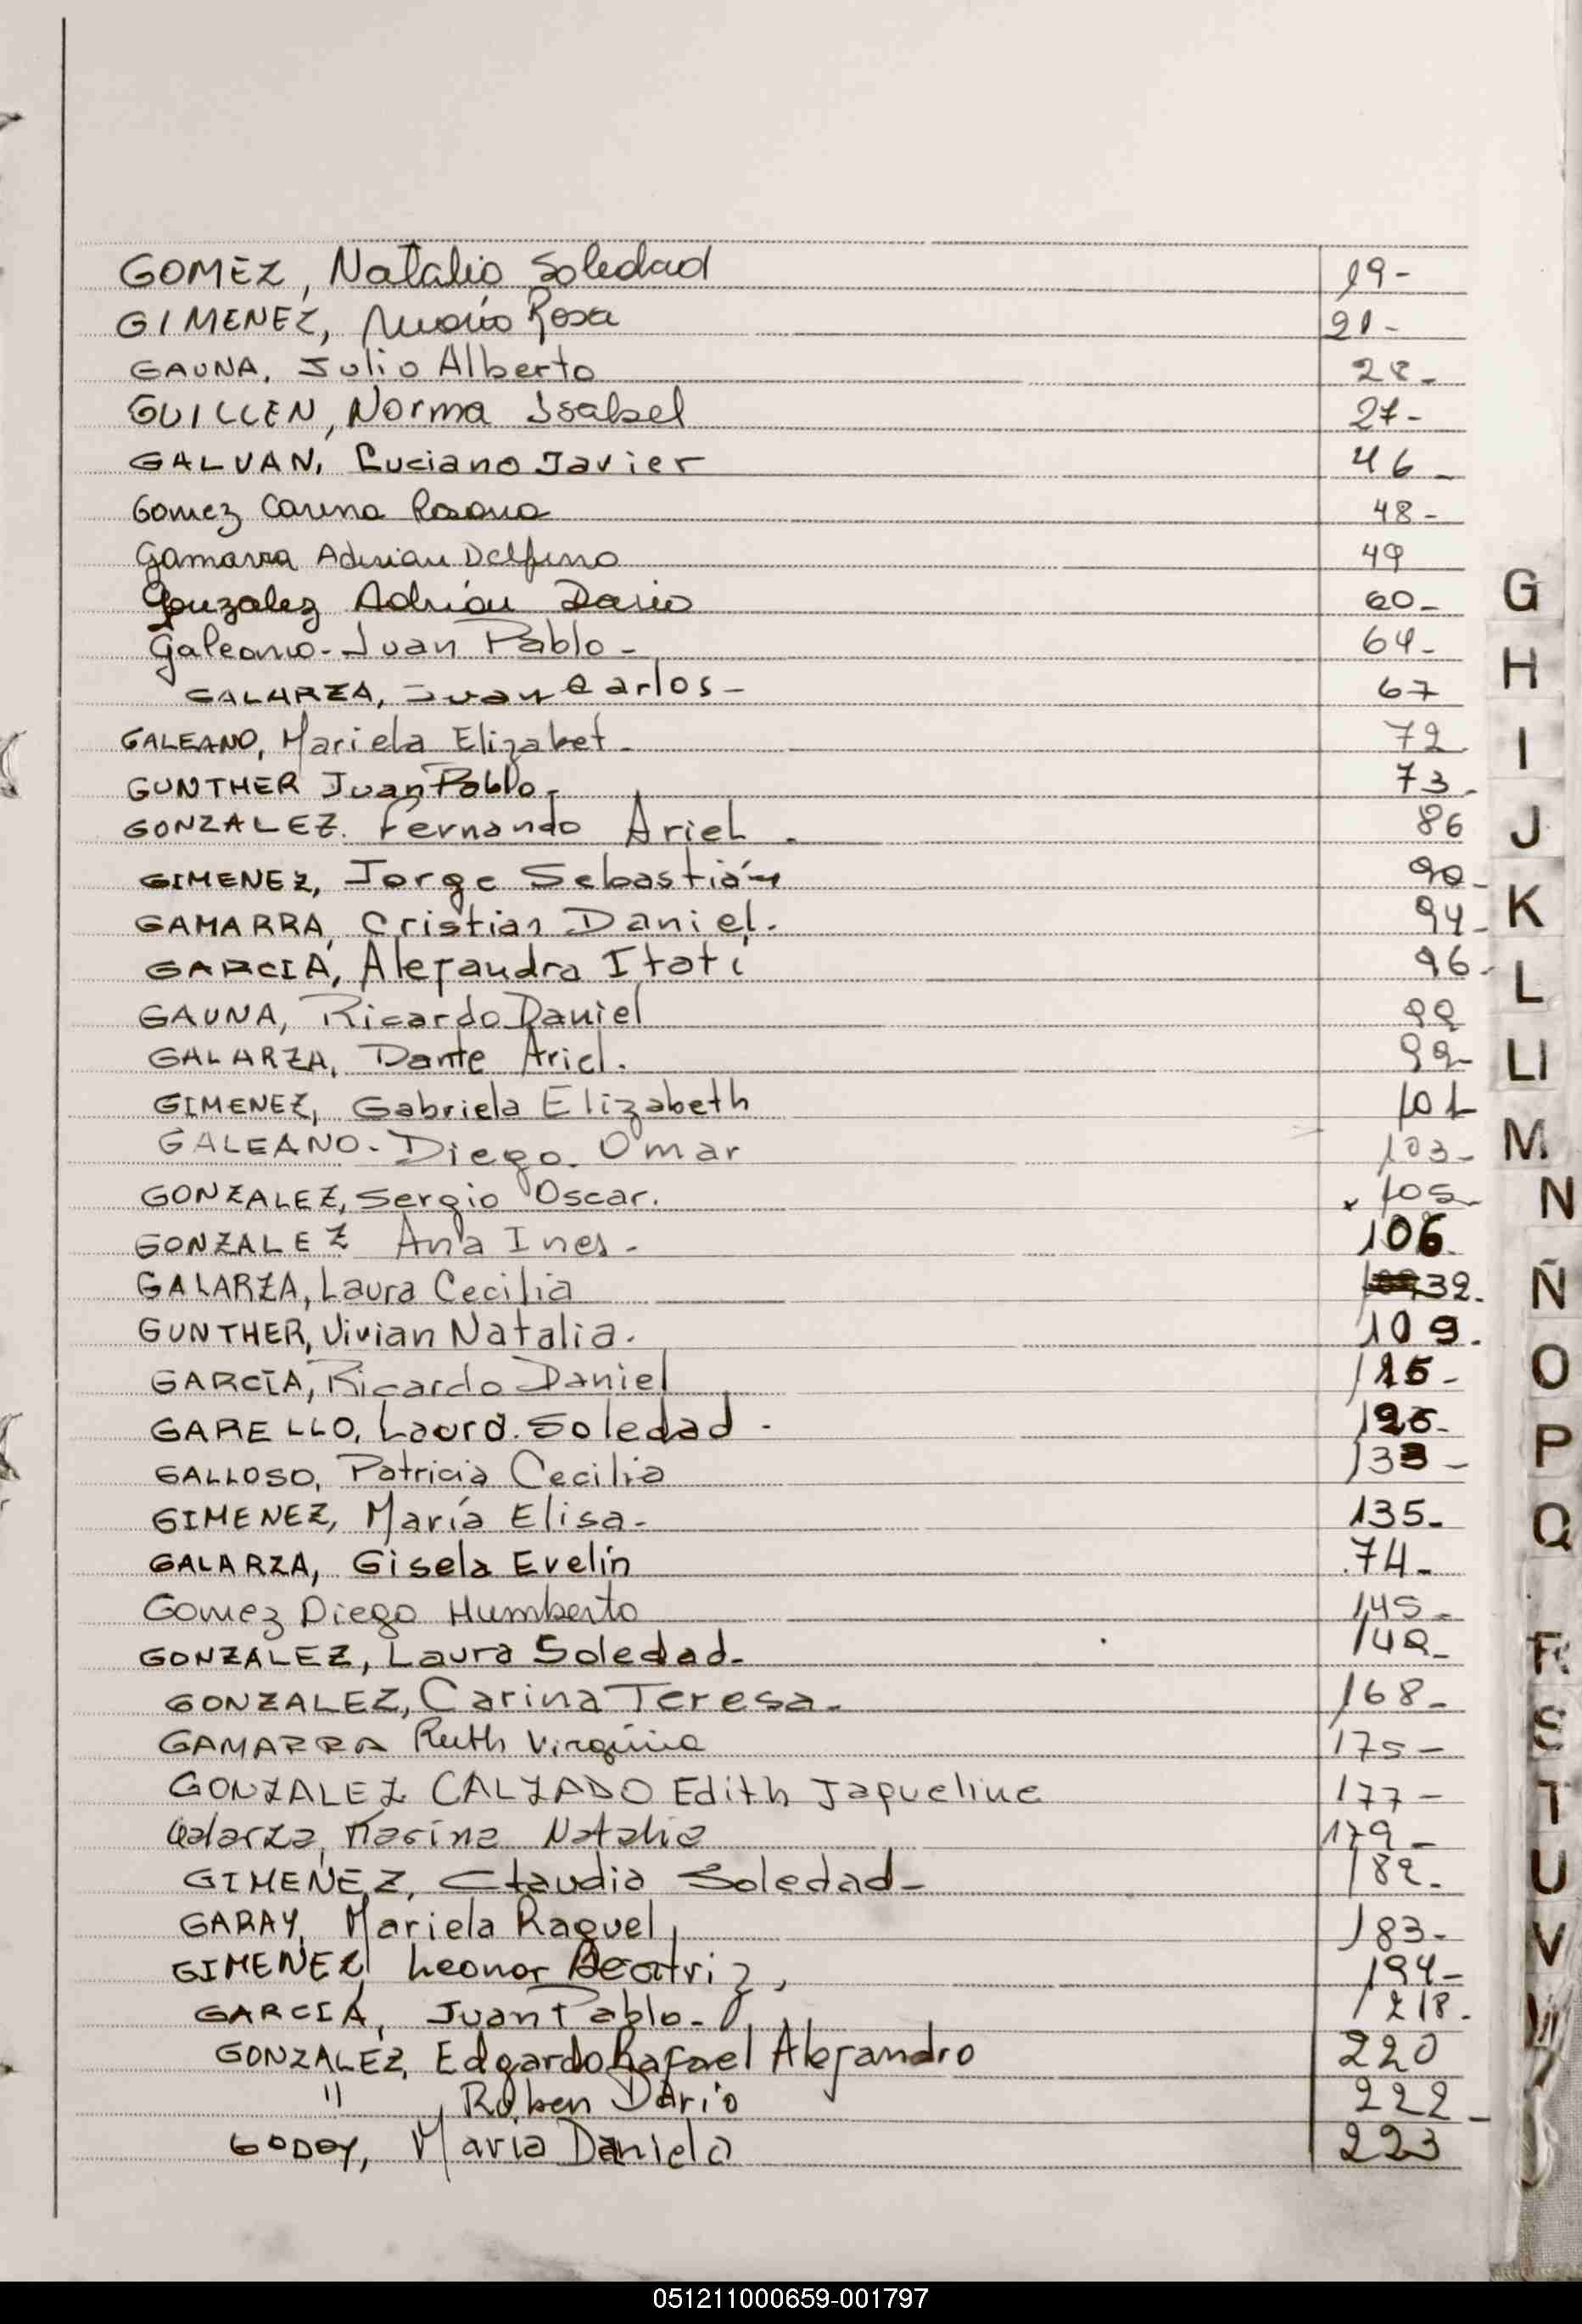 GOMEZ, Natalia Soledad 19-
GIMENEZ, María Rosa 21-
GAUNA, Julio Alberto 28-
GUILLEN, Norma Isabel 27-
GALVAN, Luciano Javier 46-
Gomez Carina Rosana 48-
Gamarra Adrian Delfino 49
Gonzalez Adrián Dario 60-
Galeano-Juan Pablo- 64-
GALARZA, Juan Carlos- 67
GALEANO, Mariela Elizabet- 72
GUNTHER Juan Pablo- 73-
GONZALEZ. Fernando Ariel. 86
GIMENEZ, Jorge Sebastián 90-
GAMARRA, Cristian Daniel. 94-
GARCIA, Alejandra Itatí 96-
GAUNA, Ricardo Daniel
GALARZA, Dante Ariel. 99-
GIMENEZ, Gabriela Elizabeth 101
GALEANO-Diego Omar 103-
GONZALEZ, Sergio Oscar. 105-
GONZALEZ Ana Ines- 106-
GALARZA, Laura Cecilia 32.
GUNTHER, Vivian Natalia. 109.
GARCÍA, Ricardo Daniel 115-
GARELLO, Laura Soledad- 126-
GALLOSO, Patricia Cecilia 133-
GIMENEZ, María Elisa- 135-
GALARZA, Gisela Evelin 74-
Gomez Diego Humberto 145-
GONZALEZ, Laura Soledad-
GONZALEZ, Carina Teresa- 168-
GAMARRA Ruth Virginia 175-
GONZALEZ CALZADO Edith Jaqueline 177-
Galarza, Karina Natalia 179-
GIMENEZ, Claudia Soledad- 182-
GARAY, Mariela Raquel 183-
GIMENEZ Leonor Beatriz, 194-
GARCIA, Juan Pablo- 218-
GONZALEZ, Edgardo Rafael Alejandro 220
" Ruben Dario 222-
GODOY, Maria Daniela 223
G
H
I
J
K
L
Ll
M
N
Ñ
O
P
Q
R
S
T
U
V
051211000659-001797